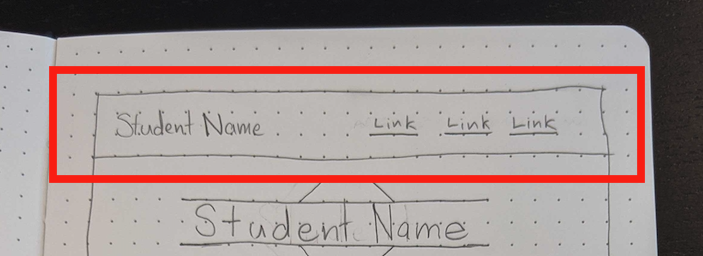 Student Name Link Link Link
Student Name